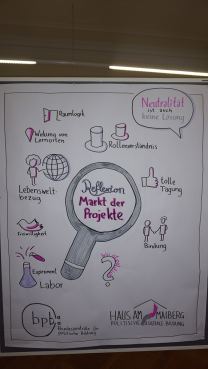 Neutralität
ist auch
keine Lösung
Raumlogik
Wirkung von
Lernorten
Rollenverständnis
Lebenswelt-
bezug
Reflexion
Markt der
Projekte
tolle
Tagung
Freiwilligkeit
Bindung
?
Experiment
Labor
bpb
Bundeszentrale für
politische Bildung
HAUS AM MAIBERG
POLITISCHE & SOZIALE BILDUNG